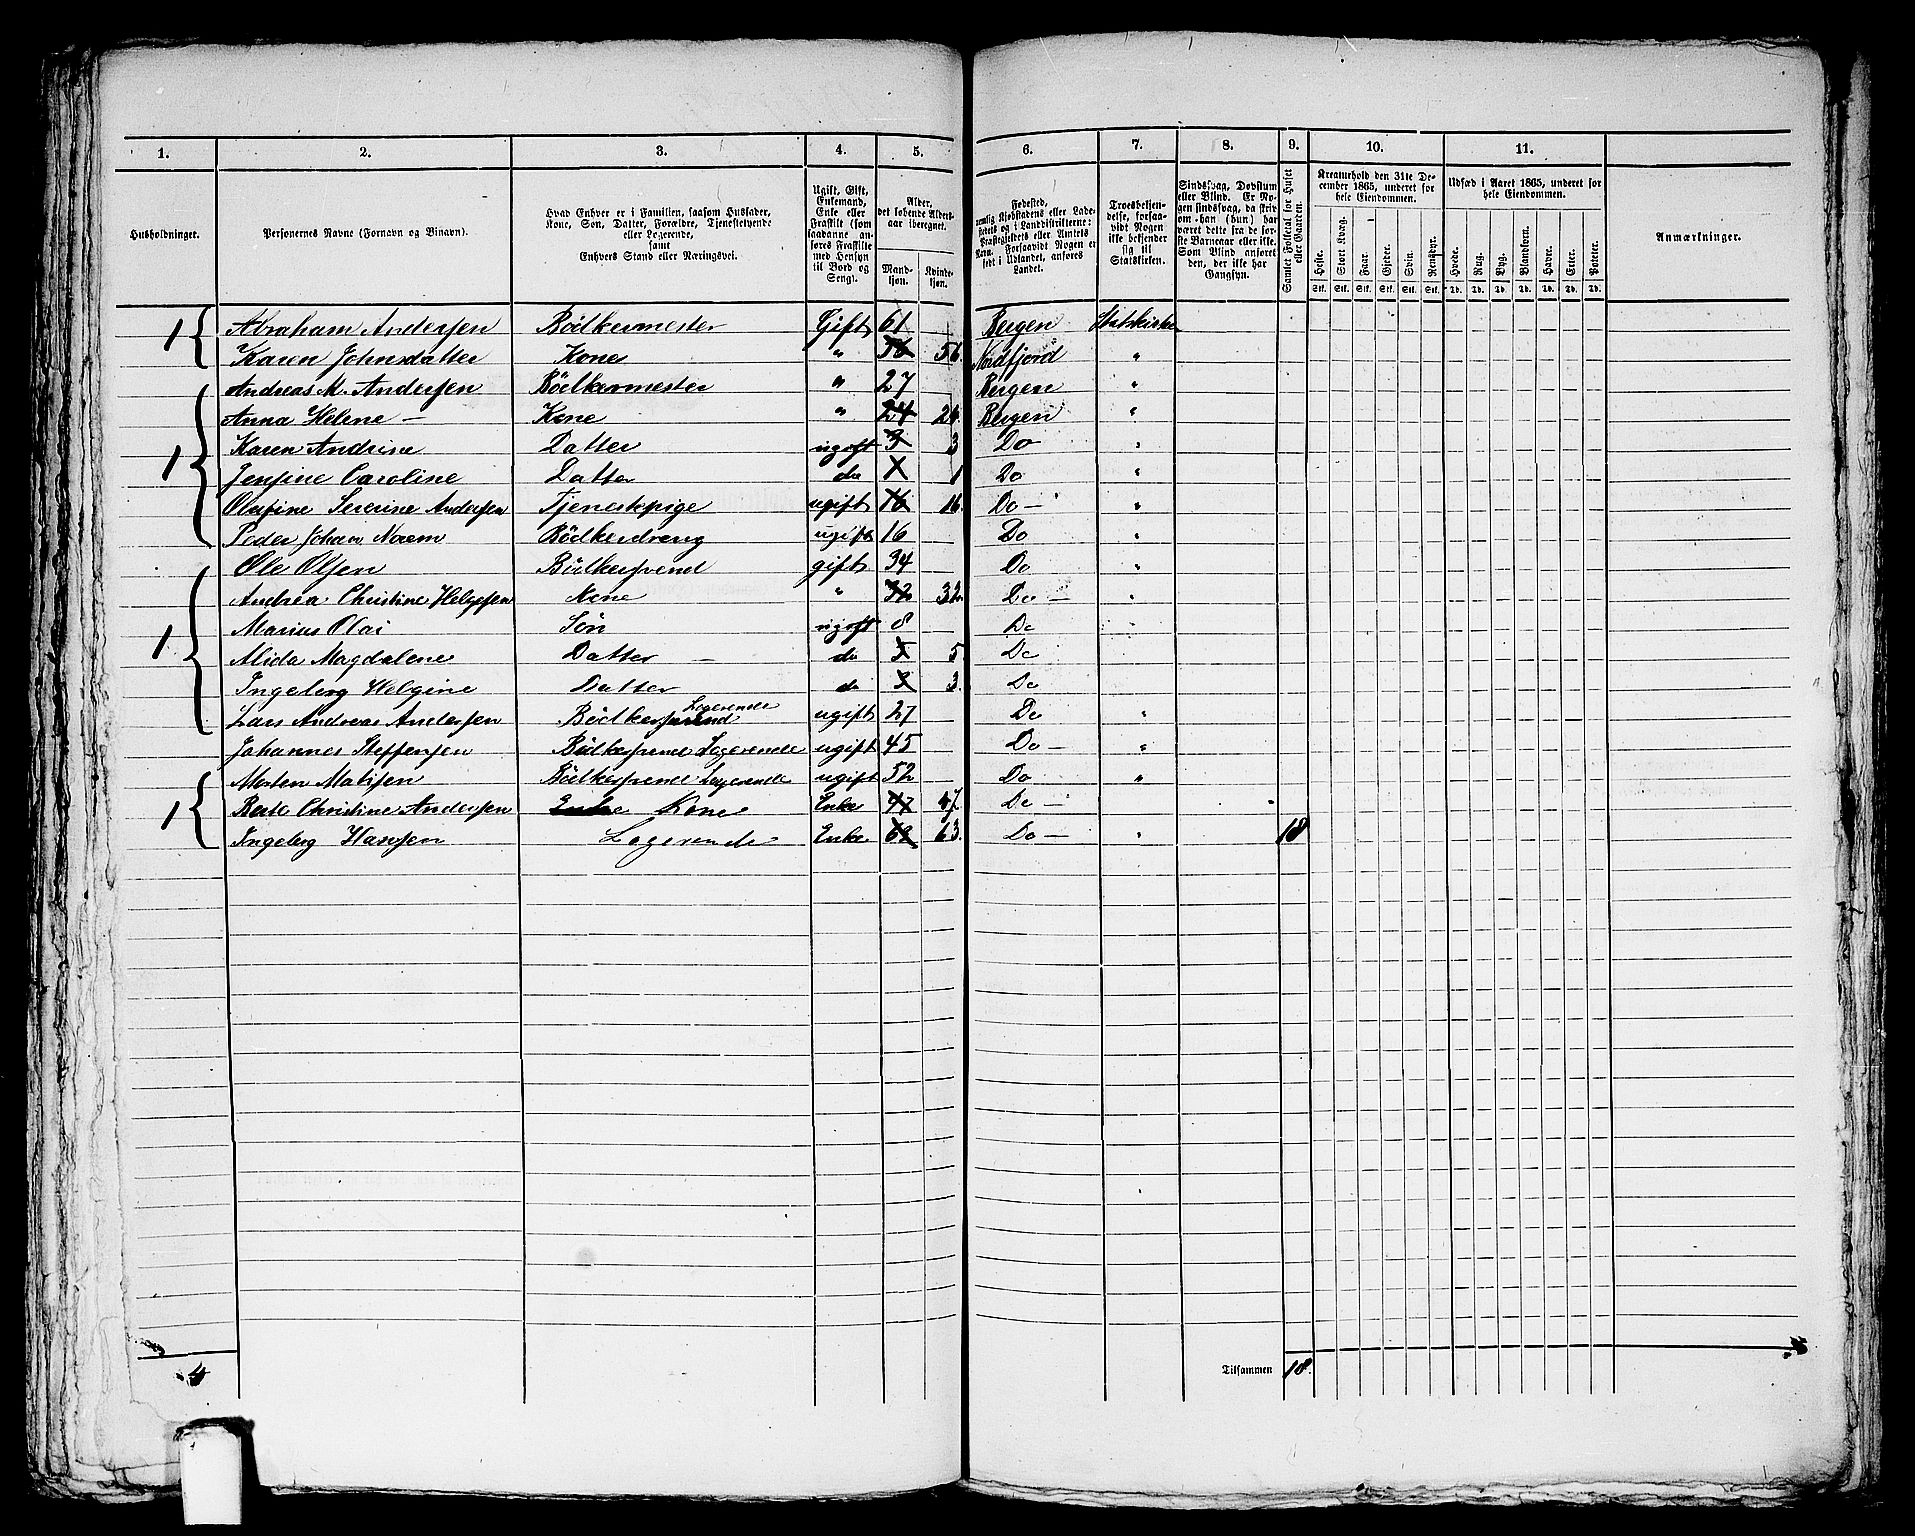 1. 2. 3. 4. 5. 6. 7. 8. 9. 10. 11.
Husholdninger.
Personernes Navne (Fornavn og Binavn).
Hvad Enhver er i Familien, saasom Husfader,
Kone, Søn, Datter, Forældre, Tjenestetyende
eller Logerende,
samt
Enhvers Stand eller Næringsvei.
Ugift, Gift,
Enkemand,
Enke eller
Fraskilt (som
saadanne an-
føres Fraskilte
med Hensyn
til Bord og
Seng).
Alder,
det løbende Alders-
aar iberegnet.
Mand-
kjøn.
Kvinde-
kjøn.
Fødested,
nemlig Kjøbstadens eller Lade-
stedets og i Landdistrikterne:
Præstegjeldets eller Amtets
Navn. Forsaavidt Nogen er
født i Udlandet, anføres
Landet.
Troesbekjen-
delse, forsaa-
vidt Nogen
ikke bekjender
sig til
Statskirken.
Sindssvag, Døvstum
eller Blind. Er No-
gen sindssvag, da skriv
om han (hun) har
været dette fra de før-
ste Barneaar eller ikke.
Som Blind anføres
den, der ikke har
Gangsyn.
Samlet Folketal for Huset
eller Gaarden.
Kreaturhold den 31te De-
cember 1865, underet for
hele Eiendommen.
Heste. Stort Kvæg. Faar. Gjeder. Svin. Rensdyr.
Stk. Stk. Stk. Stk. Stk. Stk.
Udsæd i Aaret 1865, underet for
hele Eiendommen.
Hvede. Rug. Byg. Blandkorn. Havre. Erter. Poteter.
Td. Td. Td. Td. Td. Td. Td.
Anmærkninger.
1 Abraham Andersen Bödkermester Gift 61 Bergen Statskirke
Karen Johnsdatter Kone " 56 56 Nordfjord "
1 Andreas M. Andersen Bödkermester " 27 Bergen "
Anna Helene — Kone " 24 24 Bergen "
Karen Andrine Datter ugift 3 3 Do "
Jensine Caroline Datter do 1 Do "
Olufine Severine Andersen Tjenestpige ugift 16 16 Do — "
Peder Johan Norem Bödkerdreng ugift 16 Do "
1 Ole Olsen Bödkersvend gift 34 Do "
Andrea Christine Helgesen Kone " 32 32 Do —
Marius Olai Sön ugift 8 Do
Alida Magdalene Datter — do 5 5 Do
Ingeborg Helgine Datter do 3 3 Do
Lars Andreas Andersen Bödkersvend Logerende ugift 27 Do "
Johannes Steffensen Bödkersvend Logerende ugift 45 Do — "
1 Morten Matisen Bödkersvend Logerende ugift 52 Do "
Berte Christine Andersen Enke Kone Enke 47 47 Do —
Ingeborg Hansen Logerende Enke 63 Do — " 18
4 Tilsammen 18.